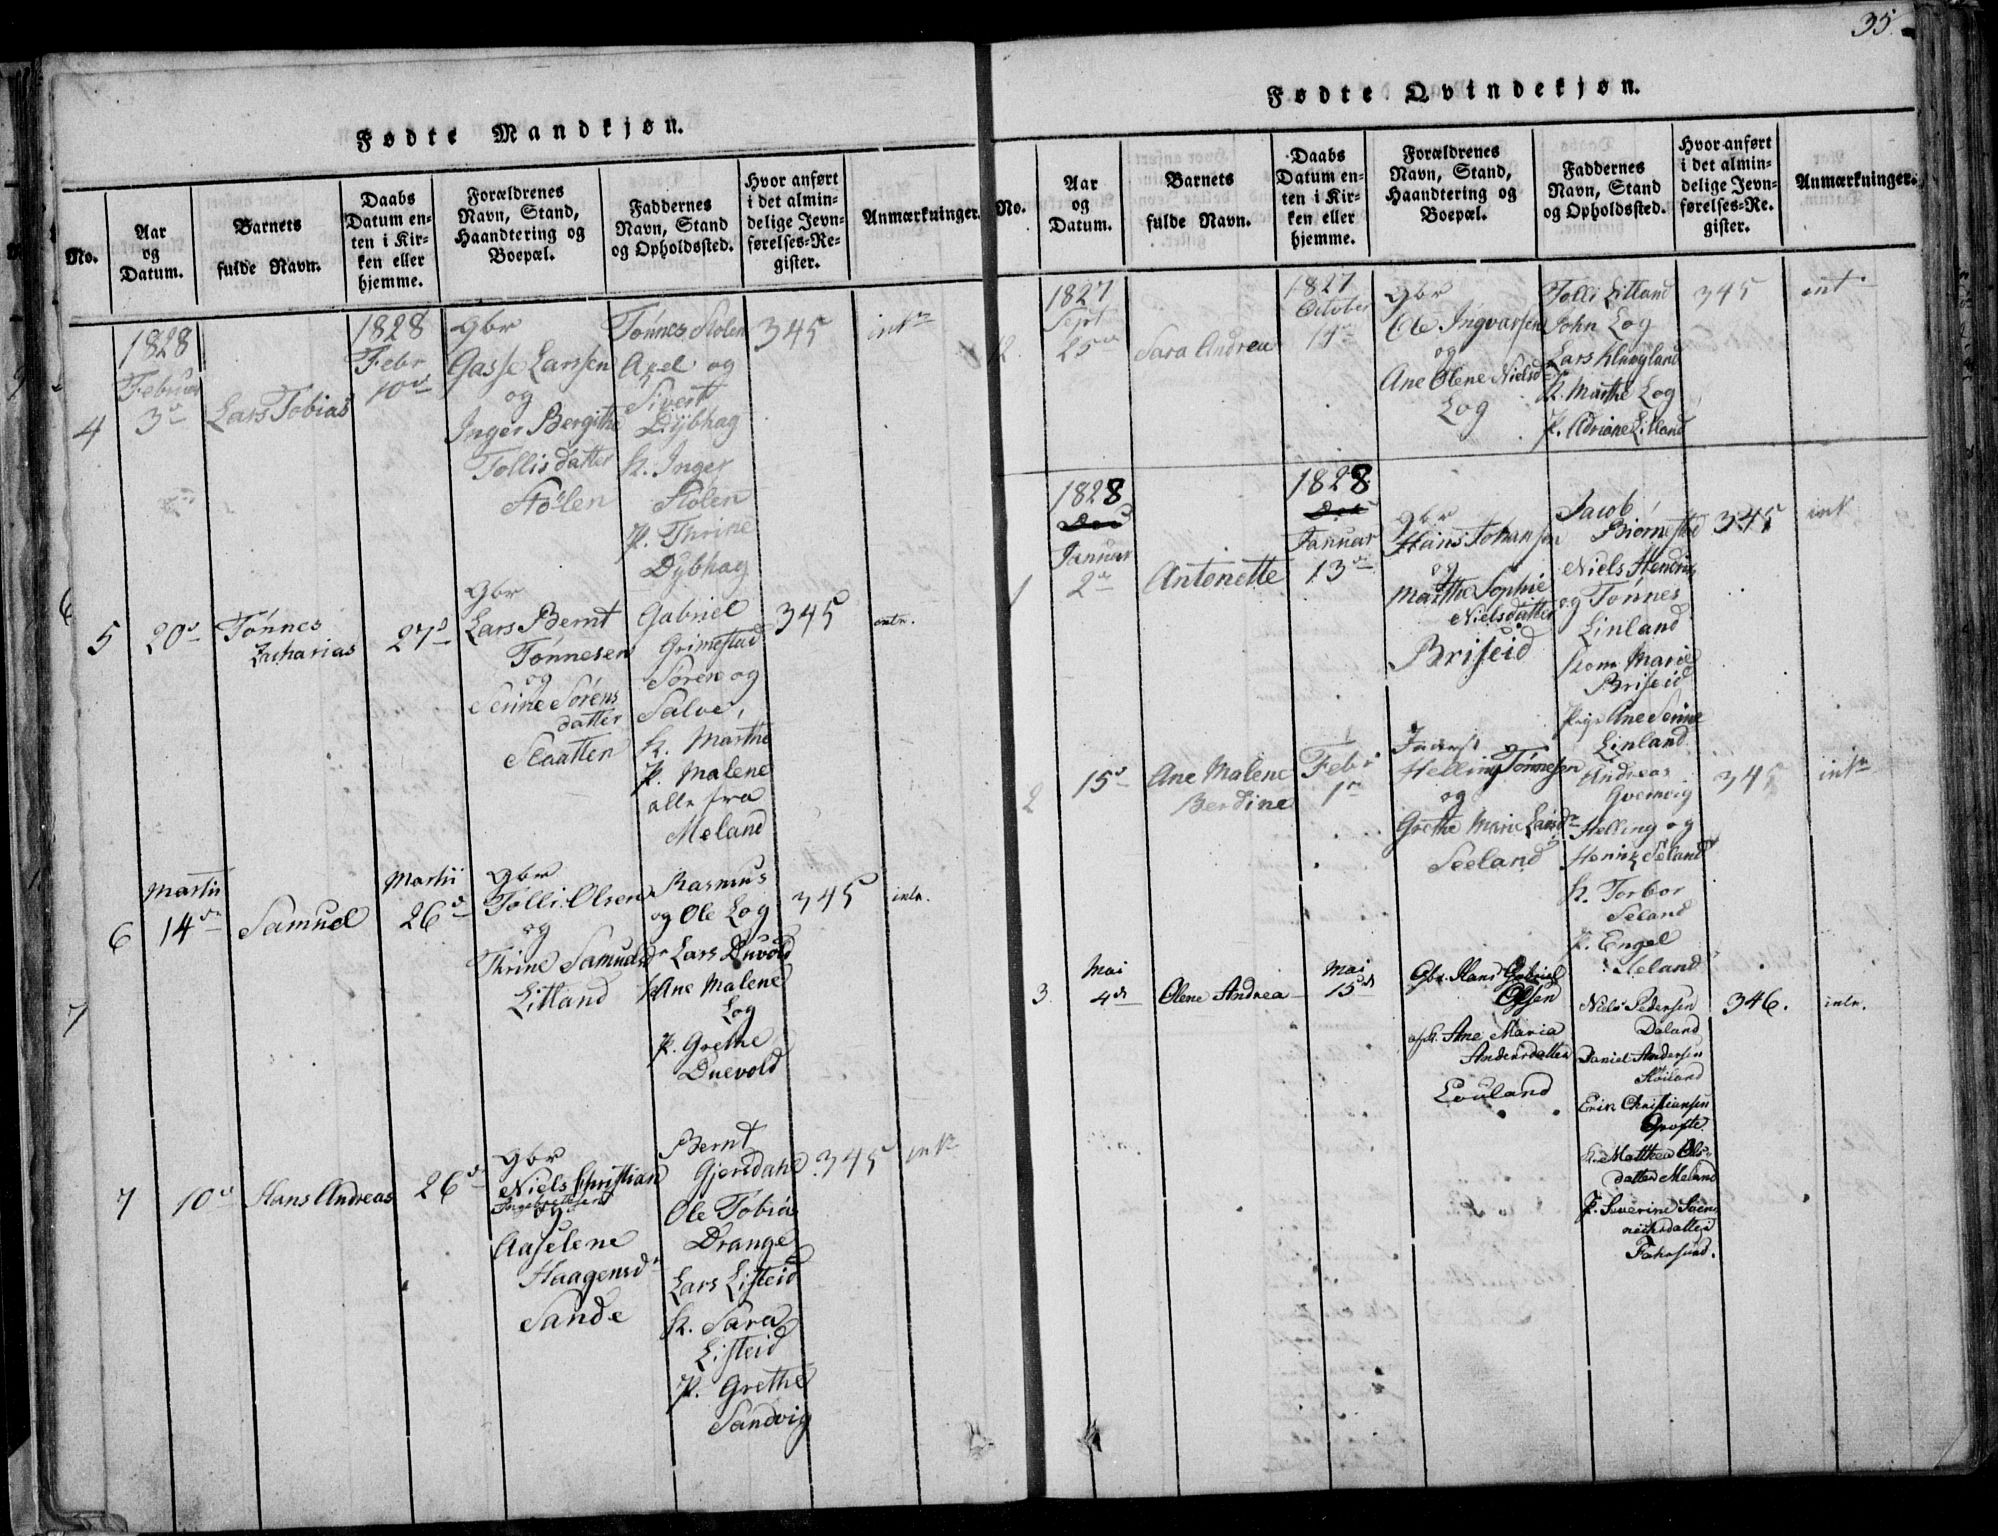 35.
Fødte Mandkjøn.
No.
Aar
og
Datum.
Barnets
fulde Navn.
Daabs
Datum en-
ten i Kir-
ken eller
hjemme.
Forældrenes
Navn, Stand,
Haandtering og
Boepæl.
Faddernes
Navn, Stand
og Opholdssted.
Hvor anført
i det almin-
delige Jevn-
førelses-Re-
gister.
Anmærkninger.
4
1828
Februar
3d
Lars Tobias
1828
Febr
10d
gbr
Gasse Larssen
og
Inger Bergithe
Tollisdatter
Stølen
Tønnes Stolen
Axel og
Sivert
Dybhag
K. Inger
Stolen
P. Thrine
Dybhag
345
intn
5
20d
Tønnes
Zacharias
27d
gbr
Lars Bernt
Tønnesen
og
Serine Sørens
datter
Slaatten
Gabriel
Grimestad
Søren og
Salve,
K. Marthe
P. Malene
alle fra
Meland
345
intn.
6
Martii
14de
Samuel
Martii
26d
gbr
Tolli Olsen
og
Thrine Samuelsd
Litland
Rasmus
og Ole Log
Lars Duvold
K Ane Malene
Log
P. Grethe
Duevold
345
intn.
7
7
10d
Hans Andreas
26d
gbr
Niels Christian
Ingebretsen
og
Aaselene
Haagensd
Sande
Bernt
Gjersdahl
Ole Tobias
Drange
Lars Listeid
K. Sara
Listeid
P. Grethe
Sandvig
345
intn
Fødte Qvindekjøn.
No.
Aar
og
Datum.
Barnets
fulde Navn.
Daabs
Datum en-
ten i Kir-
ken eller
hjemme.
Forældrenes
Navn, Stand,
Haandtering og
Boepæl.
Faddernes
Navn, Stand
og Opholdssted.
Hvor anført
i det almin-
delige Jevn-
førelses-Re-
gister.
Anmærkninger.
12
1827
Sept
25de
Sara Andrea
1827
October
14
gbr
Ole Ingvarsen
og
Ane Olene Nielsd
Log
Tolli Litland
John Log
Lars Klungland
K. Marthe Log
P. Adriane Litland
345
int.
1
1828
Januar
2d
Antonette
1828
Januar
13d
gbr
Hans Johansen
og
Marthe Sophie
Nielsdatter
Briseid
Jacob
Biørnestad
Niels Hendrik
og Tønnes
Linland
Kone Marie
Briseid
Pige Ane Serine
Linland
345
int
2
15d
Ane Malene
Berdine
Febr
1
Inderst
Helling Tønnesen
og
Grethe Marie Larsd
Seeland
Andreas
Helling og
Henrik Seland
K. Torbor
Seland
P. Engel
Seland
345
intn
3
Mai
4d
Olene Andrea
Mai
15d
Gbr. Hans Gabriel
Olsen
og K. Ane Maria
Andersdatter
Louland
Niels Pedersen
Daland
Daniel Andersen
Høiland
Erik Christiansen
K. Matthea Ols-
datter Meland
P. Severine Søren
Farsund.
346.
intn.